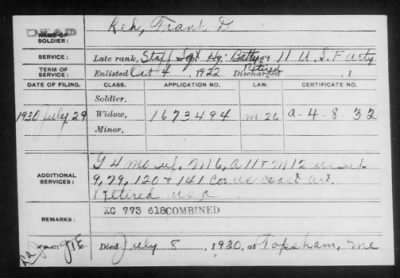 DEAD
NAME OF SOLDIER: Reh, Frank D.
SERVICE: Late rank, Staff Sgt Hq. Battery 11 U.S. F Arty
TERM OF SERVICE: Enlisted Oct 4, 1922 Discharged Retired, 1
DATE OF FILING. CLASS. APPLICATION NO. LAW. CERTIFICATE NO.
Soldier.
1930 July 29 Widow. 1673494 m 26 a-4-8-32
Minor.
ADDITIONAL SERVICES: G 4
9, 79, 120 + 141 Coast Art.
retired
REMARKS: LC 773 618 COMBINED
Died July 8, 1930, at Topsham, Me